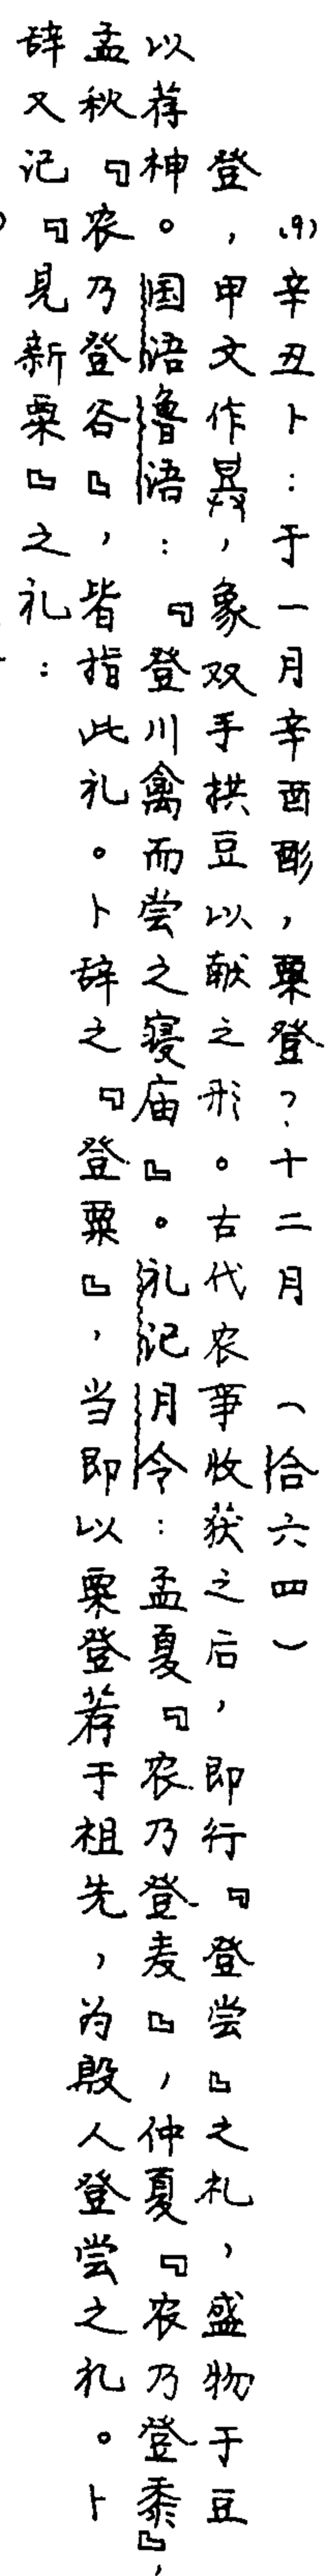 (9)辛丑卜：于一月辛酉酌，粟登？十二月　（佮六四）
登，甲文作𤼷，象双手拱豆以献之形。古代农事收获之后，即行『登尝』之礼，盛物于豆
以荐神。国语鲁语：『登川禽而尝之寝庙』。礼记月令：孟夏『农乃登麦』，仲夏『农乃登黍』，
孟秋『农乃登谷』，皆指此礼。卜辞之『登粟』，当即以粟登荐于祖先，为殷人登尝之礼。卜
辞又记『见新粟』之礼：